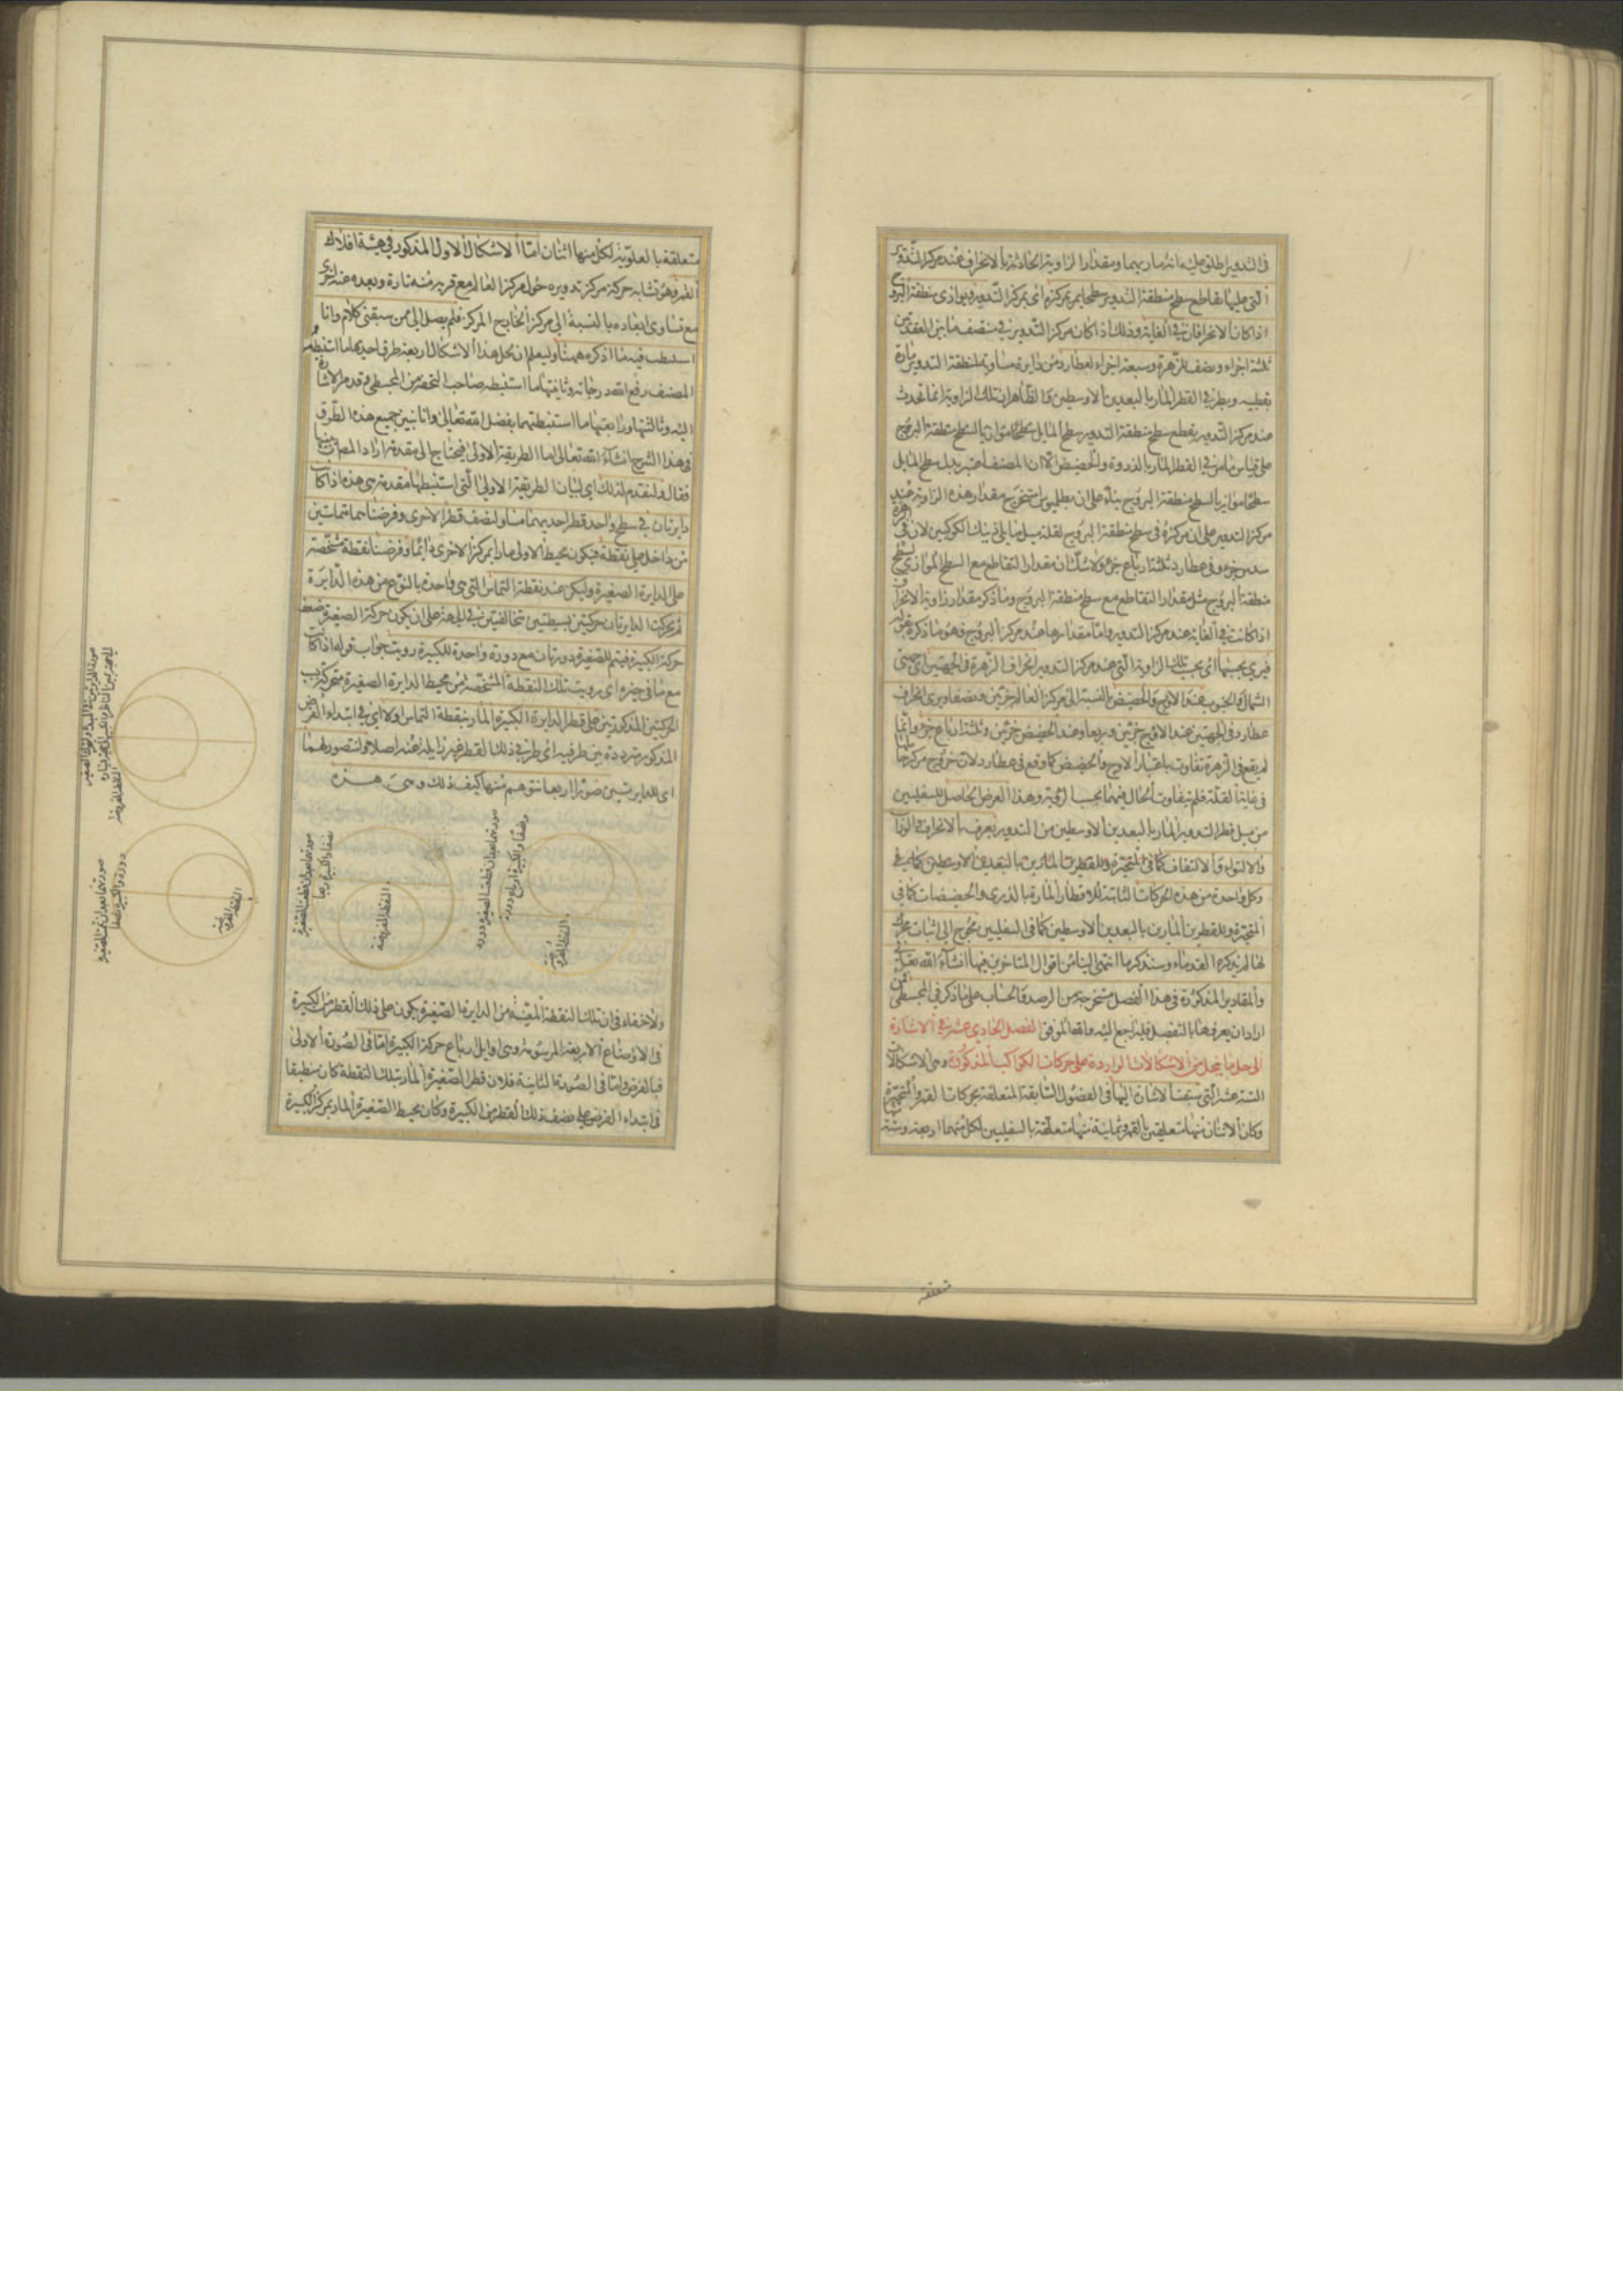 في التدوير يطلق عليه انه مار بهما ومقدار الزاوية الحادثة بالانحراف عند مركز التدوير
التي عليها يقاطع سطح منطقة التدوير سطحا يمر بمركزه اي بمركز التدوير ويوازي منطقة البروج
اذا كان الانحرافان في الغاية وذلك اذا كان مركز التدوير في منتصف ما بين العقدتين
ثلثة اجزاء ونصف للزهرة وسبعة اجزاء لعطارد من دايرة مساوية لمنطقة التدوير مارة
بقطبيه وبطرفي القطر المار بالبعدين الاوسطين والظاهر ان تلك الزاوية انما تحدث
عند مركز التدوير بقطع سطح منطقة التدوير سطح المايل سطحا موازيا لسطح منطقة البروج
على قياس ما مر في القطر المار بالذروة والحضيض الا ان المصنف اعتبر بدل سطح المايل
سطحا موازيا لسطح منطقة البروج بناء على ان بطلميوس استخرج مقدار هذه الزاوية عند
مركز التدوير على ان مركزه في سطح منطقة البروج لقلة ميل مايلي ذينك الكوكبين لانه في الزهرة
سدس جزء وفي عطارد ثلثة ارباع جزء ولا شك ان مقدار التقاطع مع السطح الموازي لسطح
منطقة البروج مثل مقدار التقاطع مع سطح منطقة البروج وما ذكر مقدار زاوية الانحراف
اذا كانت في الغاية عند مركز التدوير واما مقدارها عند مركز البروج فهو ما ذكره بقوله
فيرى بحسبها اي بحسب تلك الزاوية التي عند مركز التدوير انحراف الزهرة في الجهتين اي جهتي
الشمال والجنوب عند الاوج والحضيض بالنسبة الى مركز العالم جزئين ونصفا ويرى انحراف
عطارد في الجهتين عند الاوج جزئين وربعا وعند الحضيض جزئين وثلثة ارباع جزء وانما
لم يقع في الزهرة تفاوت باعتبار الاوج والحضيض كما وقع في عطارد لان خروج مركز حاملها
في غاية القلة فلم يتفاوت الحال فيهما بحسب الرؤية وهذا العرض الحاصل للسفليين
من ميل قطر التدوير المار بالبعدين الاوسطين من التدوير يعرف بالانحراف والوراب
والالتواء والالتفاف كما في المتحيرة وللقطرين المارين بالبعدين الاوسطين كما في
وكل واحدة من هذه الحركات الثابتة للاقطار المارة بالذرى والحضيضات كما في
المتحيرة وللقطرين المارين بالبعدين الاوسطين كما في السفليين محوج الى اثبات محرك
لها لم يذكره القدماء وسنذكر ما انتهى الينا من اقوال المتاخرين فيها انشاء الله تعالى
والمقادير المذكورة في هذا الفصل مستخرجة من الرصد والحساب على ما ذكر في المجسطي فمن
اراد ان يعرفها بالتفصيل فليراجع اليه والله الموفق الفصل الحادي عشر في الاشارة
الى حل ما ينحل من الاشكالات الواردة على حركات الكواكب المذكورة وهي الاشكالات
الستة عشر التي سبقت الاشارة اليها في الفصول السابقة المتعلقة بحركات القمر والمتحيرة
وكان الاثنان منها متعلقين بالقمر وثمانية منها متعلقة بالسفليين لكل منهما اربعة وستة
متعلقة
متعلقة بالعلوية لكل منها اثنان اما الاشكال الاول المذكور في هيئة افلاك
القمر وهو تشابه حركة مركز تدويره حول مركز العالم مع قربه منه تارة وبعده عنه اخرى
مع تساوي ابعاده بالنسبة الى مركز الخارج المركز فلم يصل الي ممن سبقني كلام وانا
استنبطت فيه ما اذكره ههنا وليعلم ان لحل هذا الاشكال اربعة طرق احديها ما استنبطه
المصنف رفع الله درجاته وثانيتها ما استنبطه صاحب التحفة من المجسطي وقد مر الاشارة
اليه وثالثتها ورابعتها ما استنبطتهما بفضل الله تعالى وانا ابين جميع هذه الطرق
في هذا الشرح انشاء الله تعالى اما الطريقة الاولى فيحتاج الى مقدمة اراد المصنف بيانها
فقال ولنقدم لذلك اي لبيان الطريقة الاولى التي استنبطها مقدمة هي هذه اذا كانت
دايرتان في سطح واحد قطر احديهما مساو لنصف قطر الاخرى وفرضنا هما متماستين
من داخل على نقطة فيكون محيط الاولى مارا بمركز الاخرى دائما وفرضنا نقطة مشخصة
على الدايرة الصغيرة وليكن عند نقطة التماس التي هي واحدة بالنوع من هذه الدايرة
ثم تحركت الدايرتان حركتين بسيطتين متخالفتين في الجهة على ان يكون حركة الصغيرة ضعف
حركة الكبيرة فيتم للصغيرة دورتان مع دورة واحدة للكبيرة رويت جواب قوله اذا كانت
مع ما في حيزه اي رويت تلك النقطة المشخصة من محيط الدايرة الصغيرة متحركة بتركب
الحركتين المذكورتين على قطر الدايرة الكبيرة المار بنقطة التماس اولا اي في ابتداء الفرض
المذكور مترددة بين طرفيه اي طرفي ذلك القطر غير زايلة عنه اصلا ولنتصور لهما
اي للدايرتين صورا اربعا نتوهم منها كيف ذلك وهي هذه
النقطة المفروضة
النقطة المفروضة
النقطة المفروضة
النقطة المفروضة
ولا خفاء في ان تلك النقطة المعينة من الدايرة الصغيرة يكون على ذلك القطر من الكبيرة
في الاوضاع الاربعة المرسومة وهي اوايل ارباع حركة الكبيرة اما في الصورة الاولى
فبالفرض واما في الصورة الثانية فلان قطر الصغيرة المار بتلك النقطة كان منطبقا
في ابتداء الفرض على نصف ذلك القطر من الكبيرة وكان محيط الصغيرة المار بمركز الكبيرة